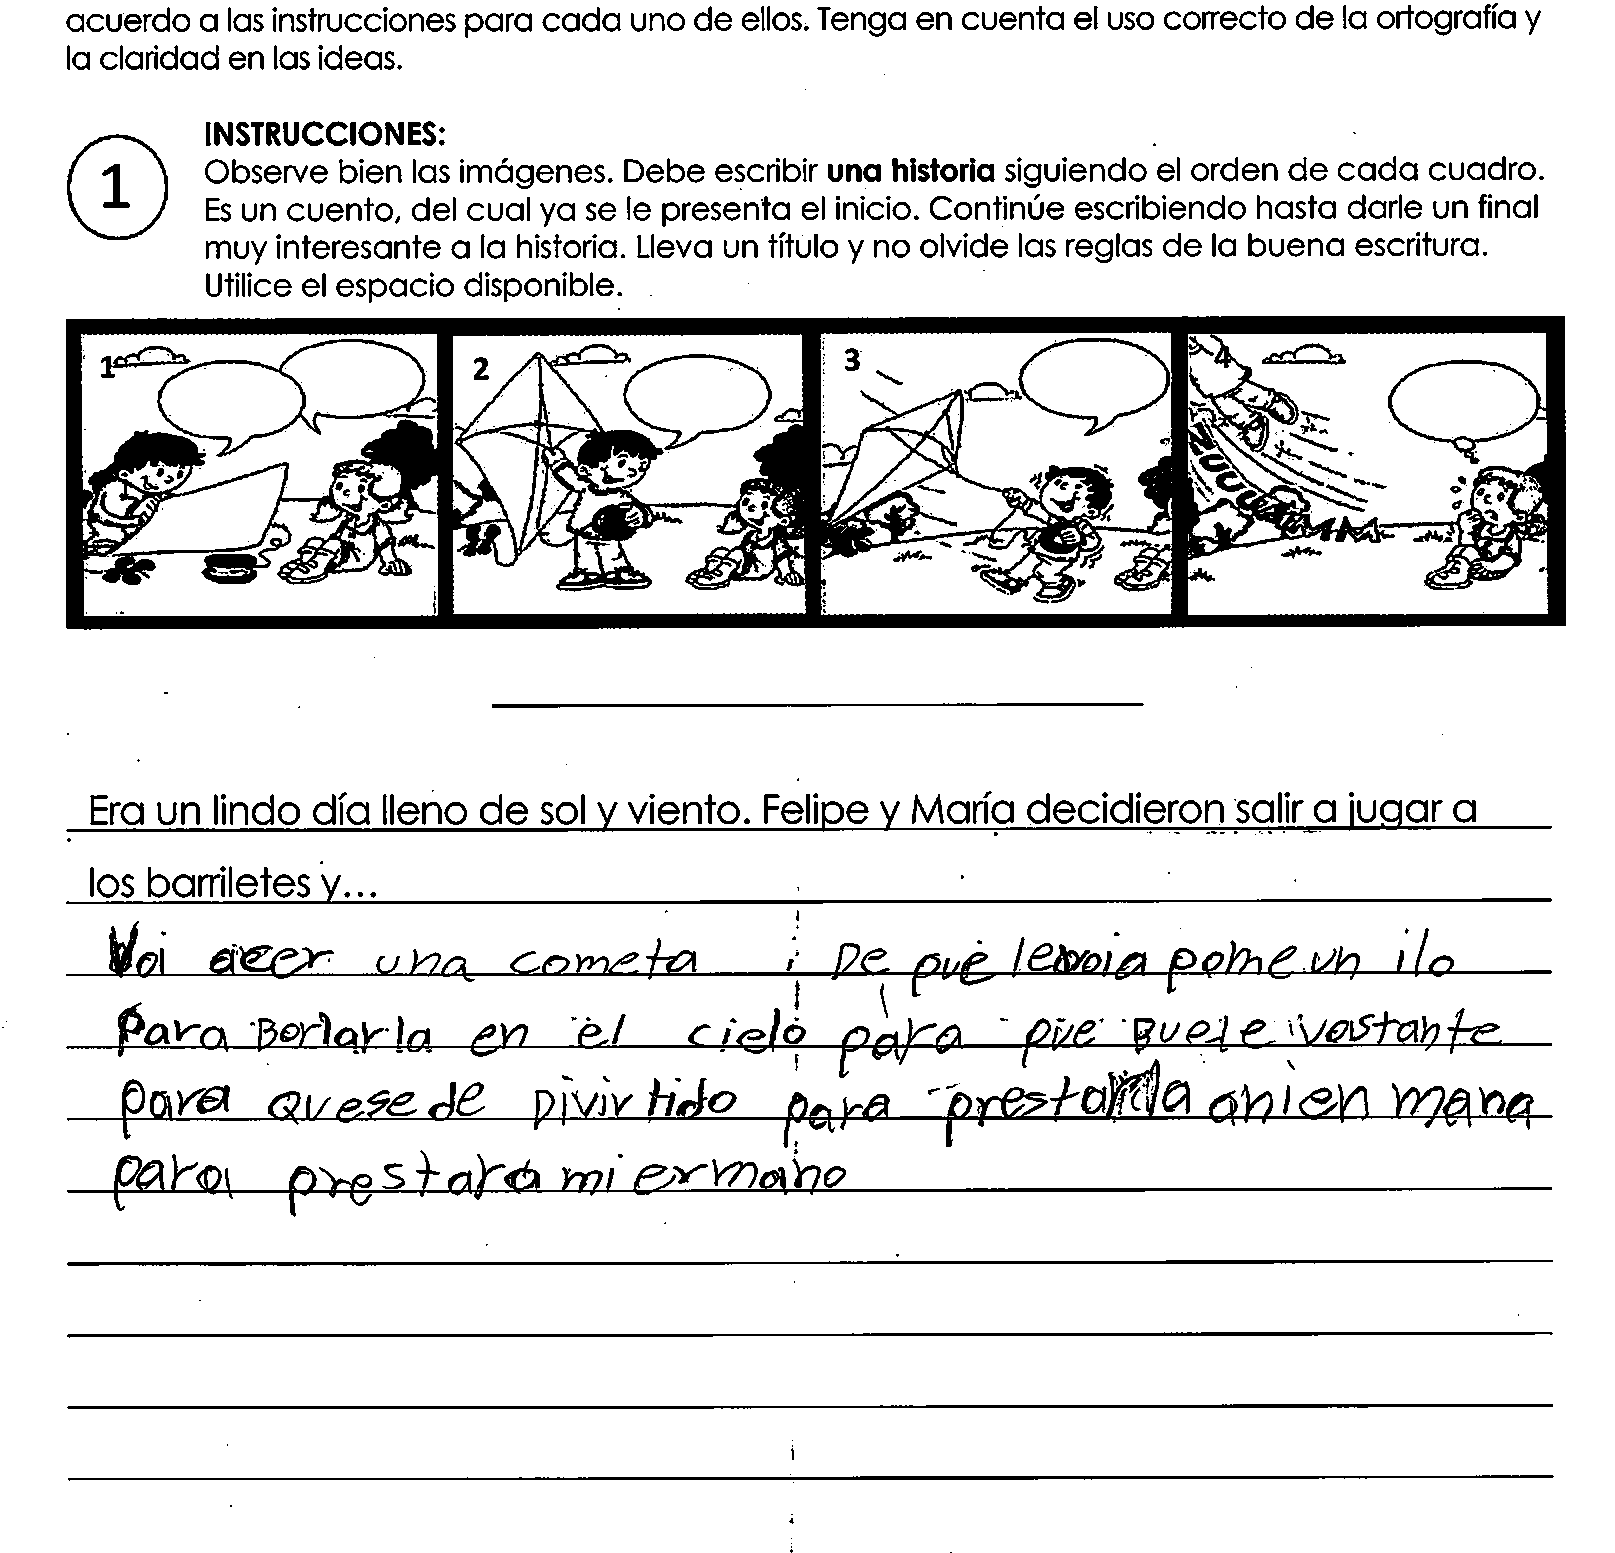 acuerdo a las instrucciones para cada uno de ellos. Tenga en cuenta el uso correcto de la ortografía y
la claridad en las ideas.
1
INSTRUCCIONES:
Observe bien las imágenes. Debe escribir una historia siguiendo el orden de cada cuadro.
Es un cuento, del cual ya se le presenta el inicio. Continúe escribiendo hasta darle un final
muy interesante a la historia. Lleva un título y no olvide las reglas de la buena escritura.
Utilice el espacio disponible.
1 2 3 4
Era un lindo día lleno de sol y viento. Felipe y María decidieron salir a jugar a
los barriletes y...
Voi acer una cometa De que pome un ilo
para Borlarla en el cielo para que Buele vastante
para Quesede Divirtido para mana
para prestara mi ermano